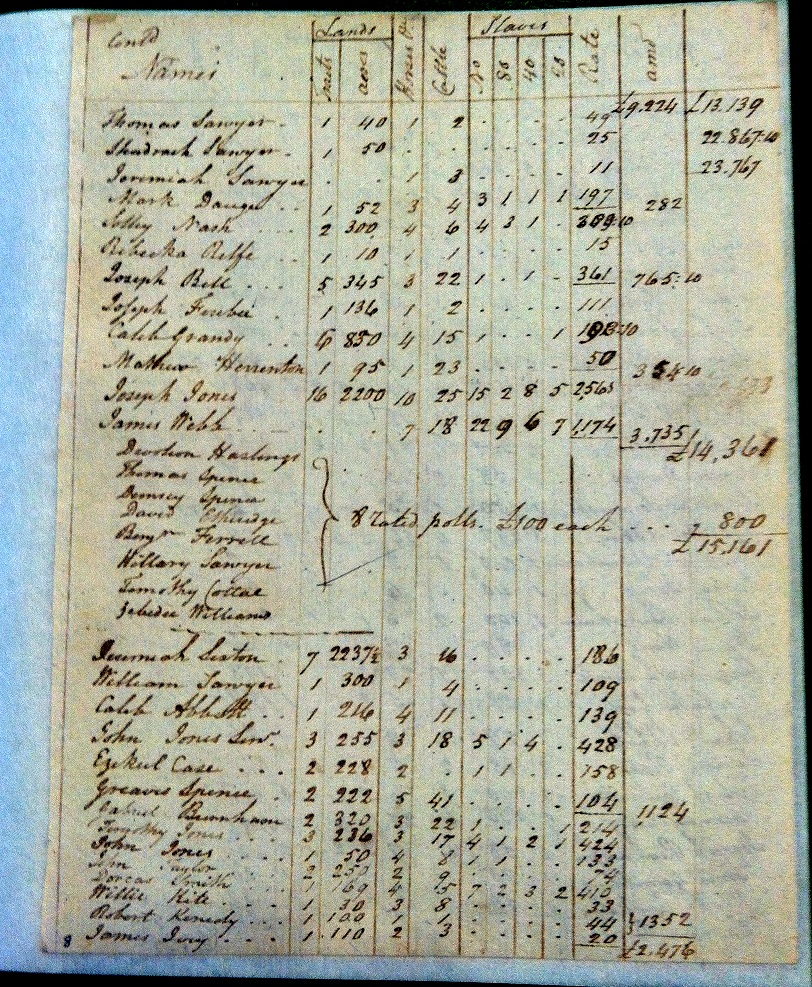 Contd Lands Slaves
Names Tracts acres Horses Cattle No 80 40 20 Rate amt
£9.224 £13.139
Thomas Sawyer . 1 40 1 2 . . . . 49
Shadrach Sawyer . 1 50 . . . . . . 25 22.867:10
Jeremiah Sawyer . . 1 3 . . . . 11 23.767
Mark Dauge . . 1 52 3 4 3 1 1 1 197 282
Solley Nash . . . 2 300 4 6 4 3 1 . :10
Rebecka Relfe . 1 10 1 1 . . . . 15
Joseph Bell . . . 5 345 3 22 1 . 1 . 361 765:10
Joseph Ferebee . 1 136 1 2 . . . . 111
Caleb Grandy . . 6 850 4 15 1 . . 1 :10
Mathew Herrenton 1 95 1 23 . . . . 50 354:10
Joseph Jones 16 2200 10 25 15 2 8 5 2561
James Webb . . . . . 7 18 22 9 6 7 1174 3.735
£14.361
Devotion Hastings
Thomas Spence
Demsey Spence
David Etheridge
8 rated polls. £100 each . . . 800
Benjm Ferrell
£15.161
Hillary Sawyer
Timothy Cottae
Zebedee Williams
Jeremiah Sexton . 7 2237½ 3 16 . . . . 186
William Sawyer 1 300 1 4 . . . . 109
Caleb Abbott . . 1 216 4 11 . . . . 139
John Jones Senr. 3 255 3 18 5 1 4 . 428
Ezekiel Case . . . 2 228 2 . 1 1 . . 158
Greaves Spence . . 2 222 5 41 . . . . 104 1124
Gabriel Burnham 2 320 3 22 1 . . 1 214
Timothy Jones . . . 3 236 3 17 4 1 2 1 424
John Jones . . . . 1 50 4 8 1 1 . . 133
John Taylor . . . 2 250 2 9 . . . . 74
Dorcas Smith . . . 1 169 4 15 7 2 3 2 410
Willie Kite . . . . 1 30 3 8 . . . . 33
Robert Kenedy . . . 1 100 1 1 . . . . 44 1352
James Ivey . . . 1 110 2 3 . . . . 20
£2.476
8